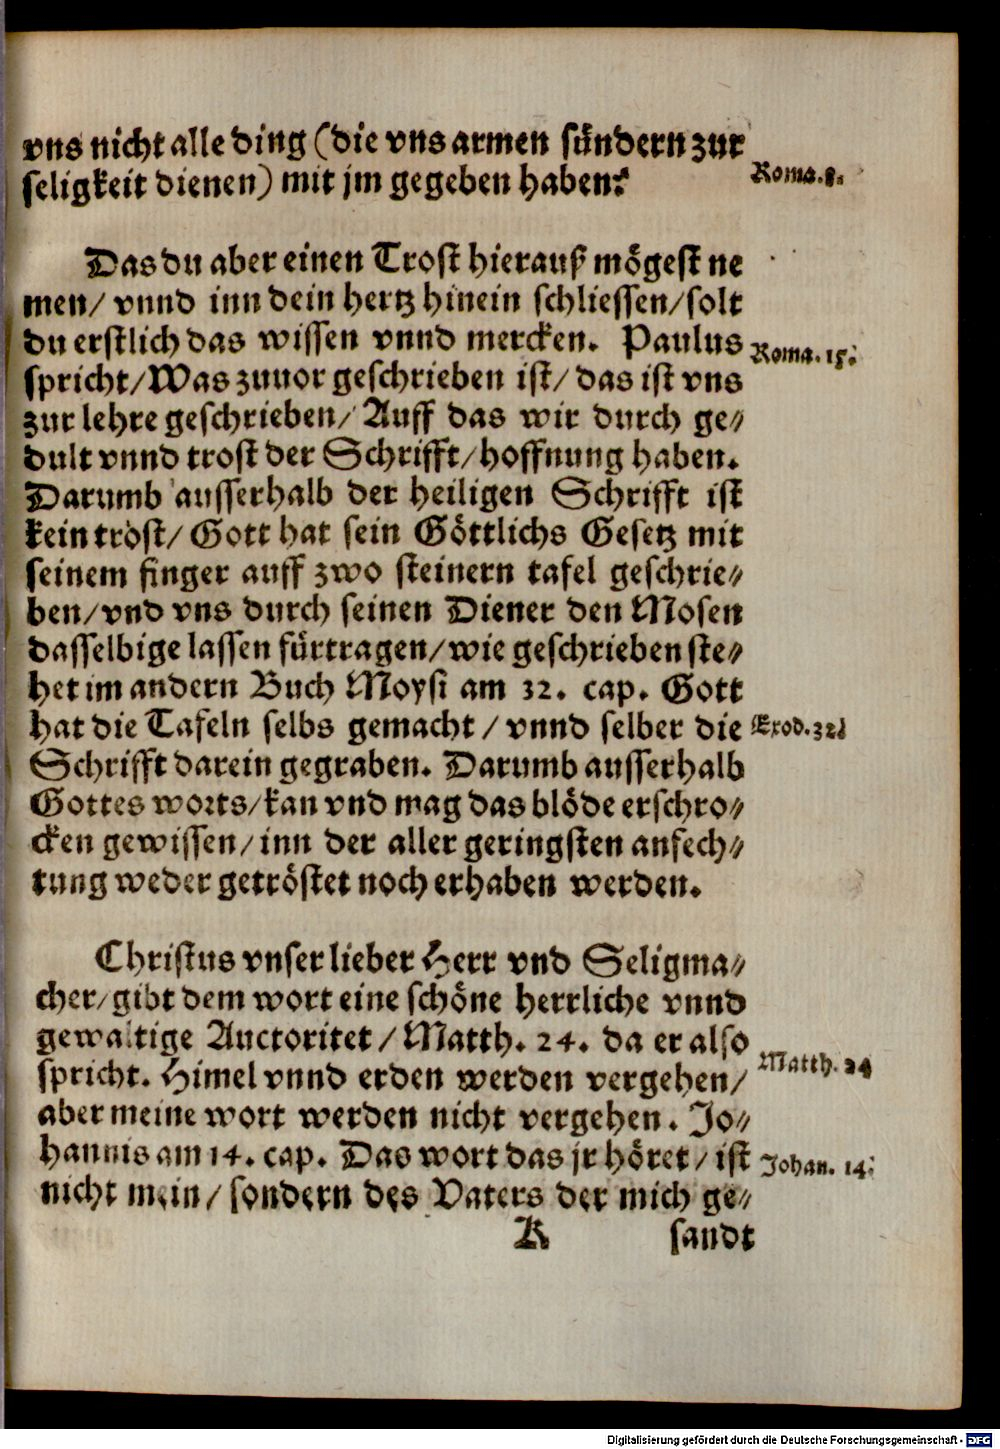 vns nicht alle ding (die vns armen sündern zur
seligkeit dienen) mit jm gegeben haben?
Roma. 8.
Das du aber einen Trost hierauß mögest ne
men/ vnnd inn dein hertz hinein schliessen/ solt
du erstlich das wissen vnnd mercken. Paulus
Roma. 15.
spricht/ Was zuuor geschrieben ist/ das ist vns
zur lehre geschrieben/ Auff das wir durch ge⸗
dult vnnd trost der Schrifft/ hoffnung haben.
Darumb ausserhalb der heiligen Schrifft ist
kein trost/ Gott hat sein Göttlichs Gesetz mit
seinem finger auff zwo steinern tafel geschrie⸗
ben/ vnd vns durch seinen Diener den Mosen
dasselbige lassen fürtragen/ wie geschrieben ste⸗
het im andern Buch Moysi am 32. cap. Gott
hat die Tafeln selbs gemacht / vnnd selber die
Exod. 32.
Schrifft darein gegraben. Darumb ausserhalb
Gottes worts/ kan vnd mag das blöde erschro⸗
cken gewissen/ inn der aller geringsten anfech⸗
tung weder getröstet noch erhaben werden.
Christus vnser lieber Herr vnd Seligma⸗
cher/ gibt dem wort eine schöne herrliche vnnd
gewaltige Auctoritet / Matth. 24. da er also
spricht. Himel vnnd erden werden vergehen/
Matth. 24
aber meine wort werden nicht vergehen. Jo⸗
hannis am 14. cap. Das wort das jr höret/ ist
Johan. 14.
nicht mein/ sondern des Vaters der mich ge⸗
K sandt
Digitalisierung gefördert durch die Deutsche Forschungsgemeinschaft - DFG